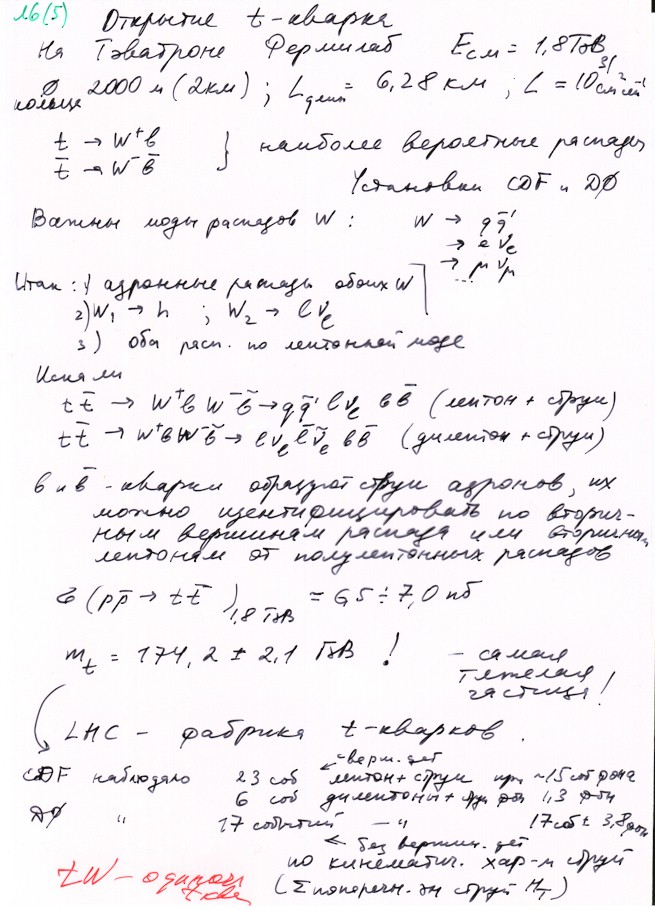 16(5) Открытие t-кварка
На Тэватроне Фермилаб Eсм = 1,8 ТэВ
Ø кольца 2000 м (2км) ; Lдлин = 6,28 км ; L = 10^31 см^-2 сек^-1
t → W⁺b
t̄ → W⁻b̄ } наиболее вероятные распады
Установки CDF и DØ
Важны моды распадов W : W → qq̄'
→ e νe
→ μ νμ
...
Итак : 1) адронные распады обоих W
2) W₁ → h ; W₂ → l νe
3) оба расп. по лептонной моде
Искали
t t̄ → W⁺b W⁻b̄ → qq̄' l νe b b̄ (лептон + струи)
t t̄ → W⁺b W⁻b̄ → l νe l̄ ν̄e b b̄ (дилептон + струи)
b и b̄ - кварки образуют струи адронов, их
можно идентифицировать по вторич-
ным вершинам распада или вторичным
лептонам от полулептонных распадов
σ (p p̄ → t t̄ )1,8 ТэВ = 6,5 ÷ 7,0 пб
mt = 174,2 ± 2,1 ГэВ ! – самая
тяжелая
частица!
LHC – фабрика t-кварков .
← верш. дет
CDF наблюдало 23 соб лептон + струи при ~15 соб фона
6 соб дилептоны + 1,3 фон
DØ " 17 событий — " 17 соб ± 3,8 фон
← без вершин. дет
по кинематич. хар-м струй
(Σ поперечн. эн струй HT)
tW – одиноч